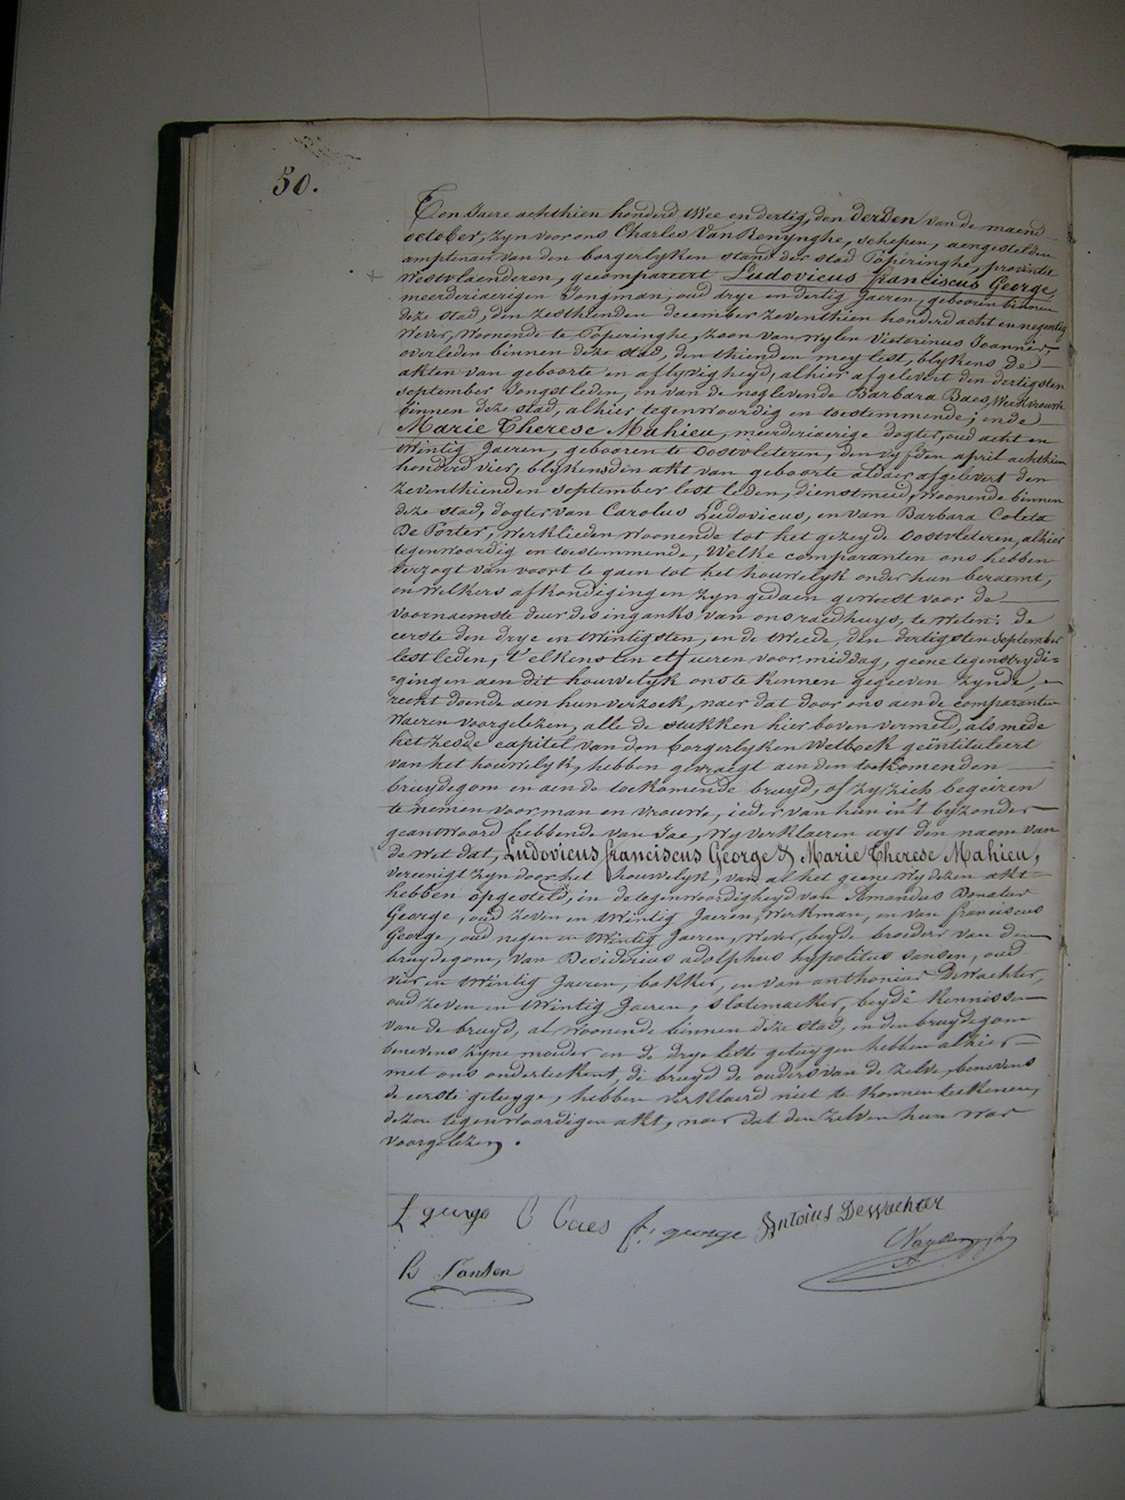 50.
Ten Jaere achthien honderd twee en dertig, den derden van de maend
october, zyn voor ons Charles Van Renynghe, schepen, aengestelden
amptenaer van den borgerlyken stand der stad Poperinghe, provintie
westvlaenderen, gecompareert Ludovicus franciscus George,
meerderjaerigen Jongman, oud drye en dertig Jaeren, gebooren binnen
deze stad, den zesthienden december zeventhien honderd acht en negentig
wever, woonende te Poperinghe, zoon van wylen Victorinus Joannes,
overleden binnen deze stad, den thienden mey lest, blykens de
akten van geboorte en aflyvigheyd, alhier afgelevert den dertigsten
september Jongstleden, en van de noglevende Barbara Baes, Werkvrouw
binnen deze stad, alhier tegenwoordig en toestemmende; ende
Marie Therese Mahieu, meerderjaerige dogter, oud acht en
twintig Jaeren, gebooren te Oostvleteren, den vyfden april achthien
honderd vier, blykens den akt van geboorte aldaer afgelevert den
zeventhienden september lest leden, dienstmeid, woonende binnen
deze stad, dogter van Carolus Ludovicus, en van Barbara Coleta
De Porter, werklieden woonende tot het gezeyde Oostvleteren, alhier
tegenwoordig en toestemmende, Welke comparanten ons hebben
verzogt van voort te gaen tot het houwelyk onder hun beraemt,
en welkers afkondigingen zyn gedaen geweest voor de
voornaemste deur des ingangs van ons raedhuys, te weten: de
eerste den drye en twintigsten, en de tweede den dertigsten september
lest leden, t'elkens ten elf ueren voor middag, geene tegenstrydi=
=gingen aen dit houwelyk ons te kennen gegeeven zynde,
recht doende aen hun verzoek, naer dat door ons aen de comparanten
waeren voorgelezen, alle de stukken hier boven vermeld, als mede
het zesde capitel van den borgerlyken Wetboek geïntituleert
van het houwelyk, hebben gevraegt aen den toekomenden
bruydegom en aen de toekomende bruyd, of zy zich begeiren
te nemen voor man en vrouwe, ieder van hun in't byzonder
geantwoord hebbende van Jae, wy verklaeren uyt den naem van
de wet dat, Ludovicus franciscus George & Marie Therese Mahieu,
vereenigt zyn door het houwelyk, van al het geene wy dezen akt
hebben opgesteld, in de tegenwoordigheyd van Amandus Donatus
George, oud zeven en twintig Jaeren, Werkman, en van franciscus
George, oud negen en twintig Jaeren, wever, beyde broeders van den
bruydegom, van Desiderius adolphus hypolitus Jansen, oud
vier en twintig Jaeren, bakker, en van anthonius DeWachter,
oud zeven en twintig Jaeren, slotemaeker, beyde kennissen
van de bruyd, al woonende binnen deze stad, en den bruydegom
benevens zyne moeder en de drye leste getuygen hebben alhier
met ons onderteekent, de bruyd de ouders van de zelve, benevens
de eerste getuyge, hebben verklaerd niet te konnen teekenen,
dezen tegenwoordigen akt, naer dat den zelven hun war
voorgelezen.
L george B Baes fr. george Antoius Dewachter
h Jansen